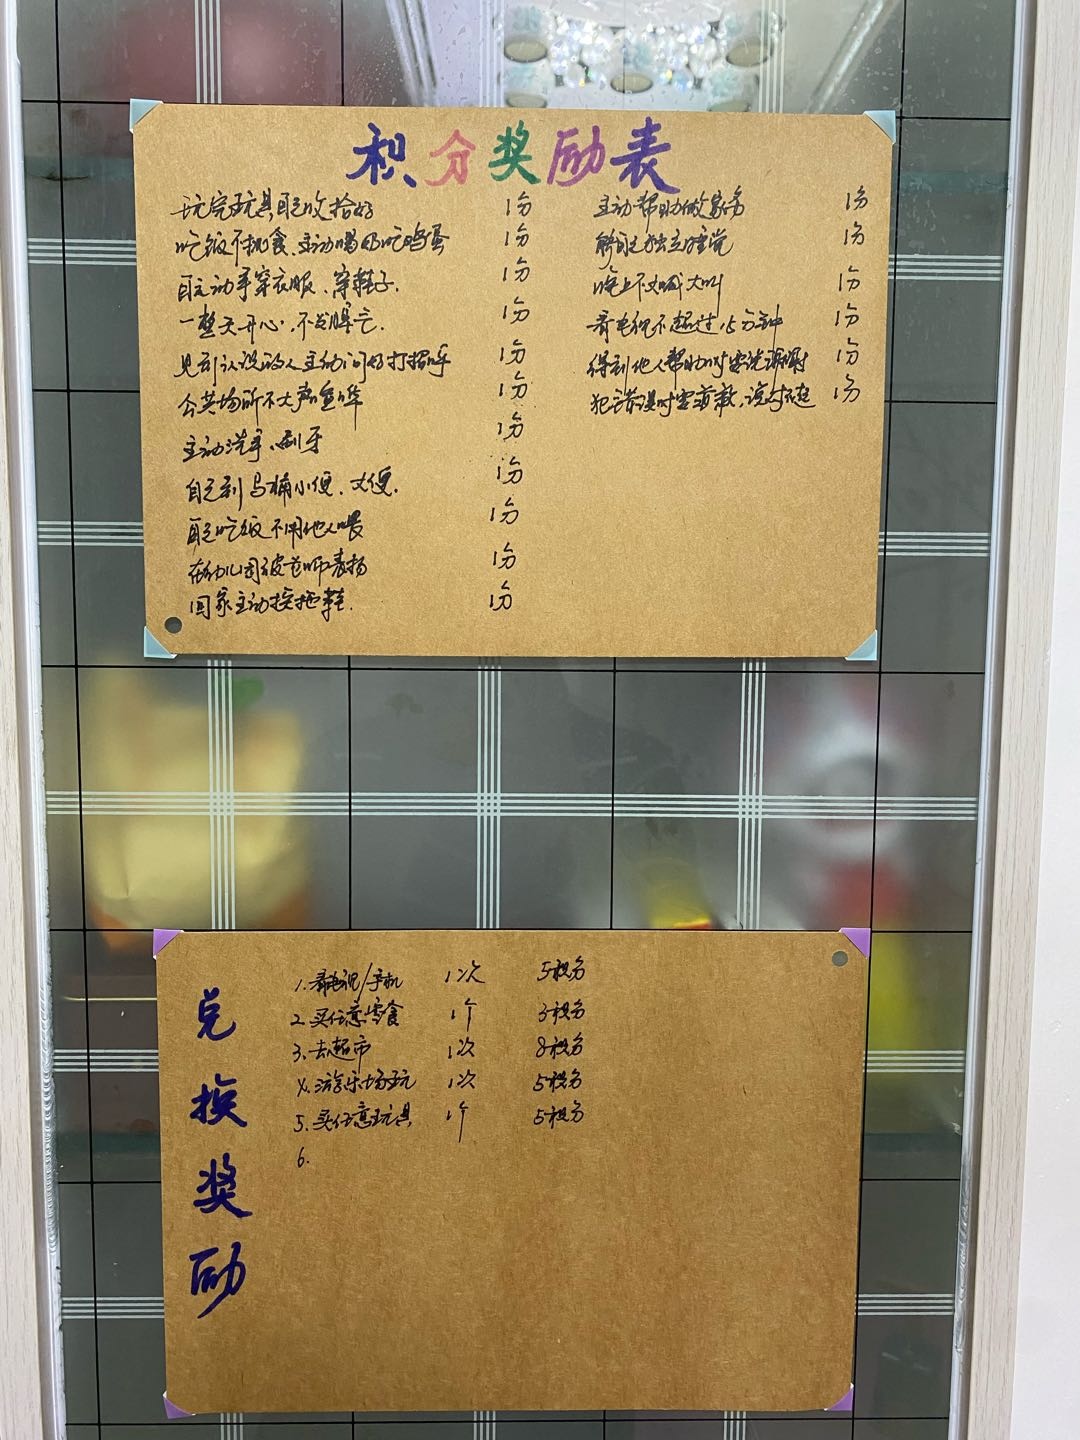 积分奖励表
玩完玩具自己收拾好 1分
吃饭不挑食、主动喝奶吃鸡蛋 1分
自己动手穿衣服、穿鞋子. 1分
一整天开心,不发脾气. 1分
见到认识的人主动问好打招呼 1分
公共场所不大声喧哗 1分
主动洗手、刷牙 1分
自己到马桶小便、大便. 1分
自己吃饭不用他人喂 1分
在幼儿园被老师表扬 1分
回家主动换拖鞋. 1分
主动帮助做家务 1分
能自己独立睡觉 1分
晚上不大喊大叫 1分
看电视不超过15分钟 1分
得到他人帮助时要说谢谢 1分
犯错误时要道歉,说对不起 1分
兑换奖励
1.看电视/手机 1次 5积分
2.买任意零食 1个 3积分
3.去超市 1次 8积分
4.游乐场玩 1次 5积分
5.买任意玩具 1个 5积分
6.